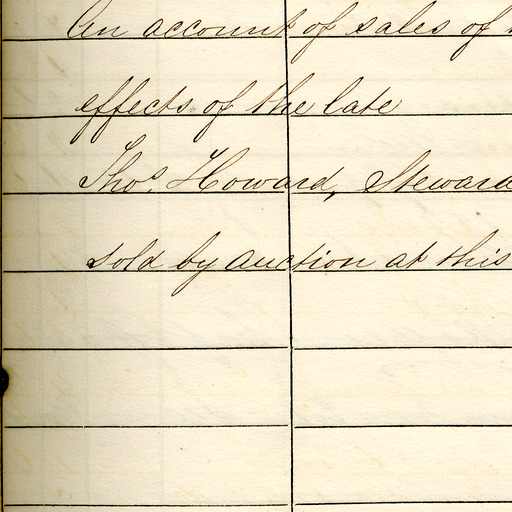 An account of sales of
effects of the late
Thos. Howard, Steward
sold by auction at this